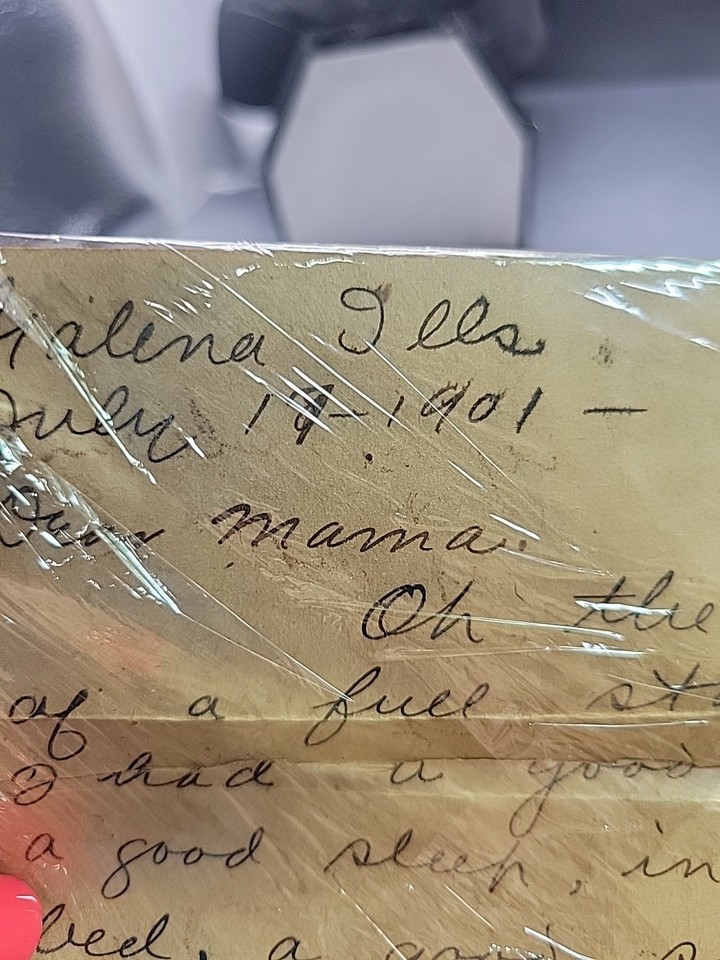 Galena Ills.
July 19-1901 —
Dear Mama.
Oh the
of a full
I had a good
a good sleep, in
bed, a good